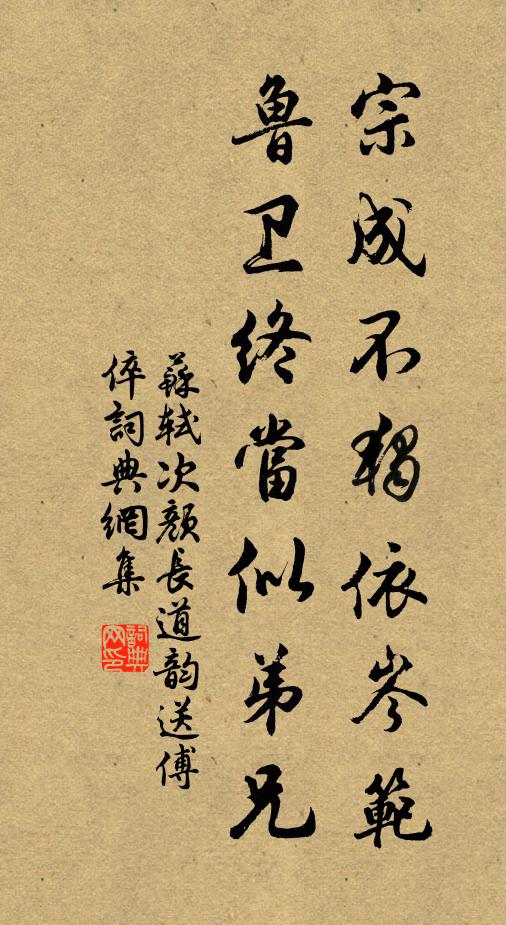 宗成不独依岑範
鲁卫终當似弟兄
蘇轼次颜長道韵送傅
倅詞典網集
詞典网印